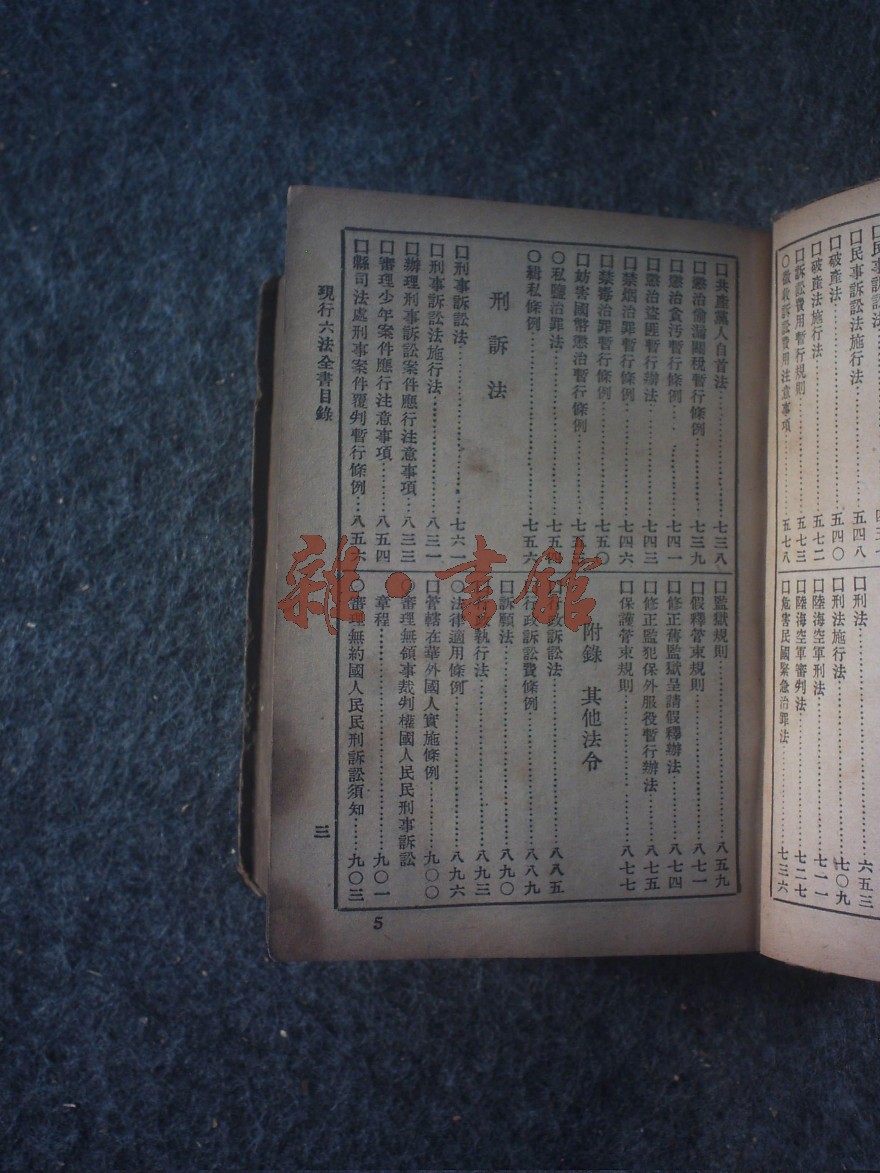 □民事訴訟法施行法……五四八
□破產法……五四〇
□破產法施行法……五七二
□訴訟費用暫行規則……五七三
〇徵收訴訟費用注意事項……五七八
□刑法……六五三
□刑法施行法……七〇九
□陸海空軍刑法……七一一
□陸海空軍審判法……七二七
□危害民國緊急治罪法……七三六
□共產黨人自首法……七三八
□懲治偷漏關稅暫行條例……七三九
□懲治貪污暫行條例……七四一
□懲治盜匪暫行辦法……七四三
□禁烟治罪暫行條例……七四六
□禁毒治罪暫行條例……七五〇
□妨害國幣懲治暫行條例……七五三
〇私鹽治罪法……七五五
〇緝私條例……七五六
刑訴法
□刑事訴訟法……七六一
□刑事訴訟法施行法……八三一
□辦理刑事訴訟案件應行注意事項……八三三
□審理少年案件應行注意事項……八五四
□縣司法處刑事案件覆判暫行條例……八五六
□監獄規則……八五九
□假釋管束規則……八七一
□修正舊監獄呈請假釋辦法……八七四
□修正監犯保外服役暫行辦法……八七五
□保護管束規則……八七七
附錄 其他法令
□行政訴訟法……八八五
□行政訴訟費條例……八八九
□訴願法……八九〇
執行法……八九三
〇法律適用條例……八九六
□管轄在華外國人實施條例……九〇〇
審理無領事裁判權國人民民刑事訴訟
章程……九〇一
〇審理無約國人民民刑訴訟須知……九〇三
現行六法全書目錄
三
5
雜·書館